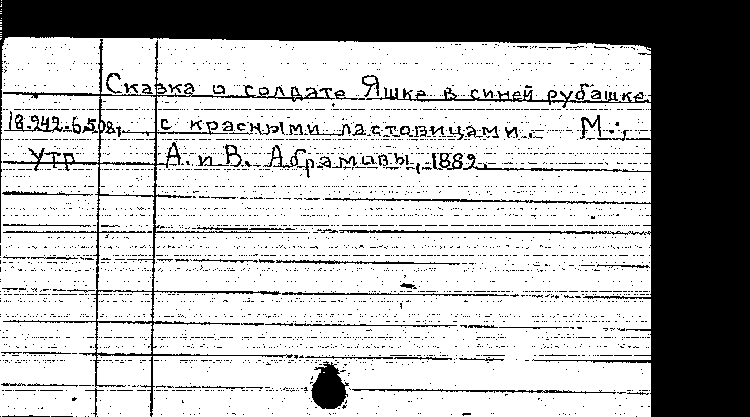 Сказка о солдате Яшке в синей рубашке
18.242.6.508, с красными ластовицами. М.;
Утр А. и В. Абрамовы, 1889.